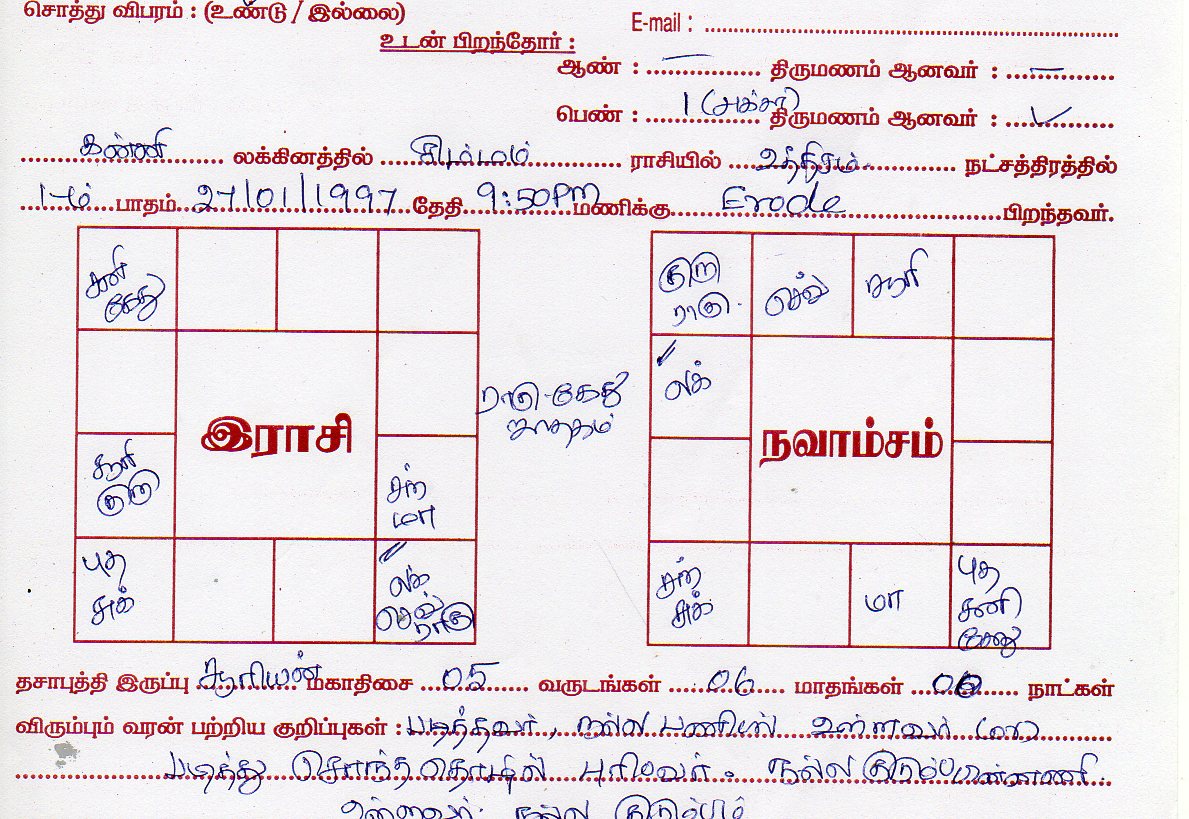 சொத்து விபரம் : (உண்டு / இல்லை)
E-mail :
உடன் பிறந்தோர் :
ஆண் : — திருமணம் ஆனவர் : —
பெண் : 1 (அக்கா) திருமணம் ஆனவர் : ✓
கன்னி லக்கினத்தில் சிம்மம் ராசியில் உத்திரம் நட்சத்திரத்தில்
1-ம் பாதம் 27/01/1997 தேதி 9:50PM மணிக்கு Erode பிறந்தவர்.
சனி
கேது
சூரி
குரு
புத
சுக்
இராசி
சந்
மா
லக்
செவ்
ராகு
ராகு-கேது
ஜாதகம்
குரு
ராகு
செவ்
சூரி
லக்
நவாம்சம்
சந்
சுக்
மா
புத
சனி
கேது
தசாபுத்தி இருப்பு சூரியன் மகாதிசை 05 வருடங்கள் 06 மாதங்கள் 06 நாட்கள்
விரும்பும் வரன் பற்றிய குறிப்புகள் : படித்தவர், நல்ல பணியில் உள்ளவர்
படித்து சொந்த தொழில் புரிபவர். நல்ல
உள்ளவர். நல்ல குடும்பம்